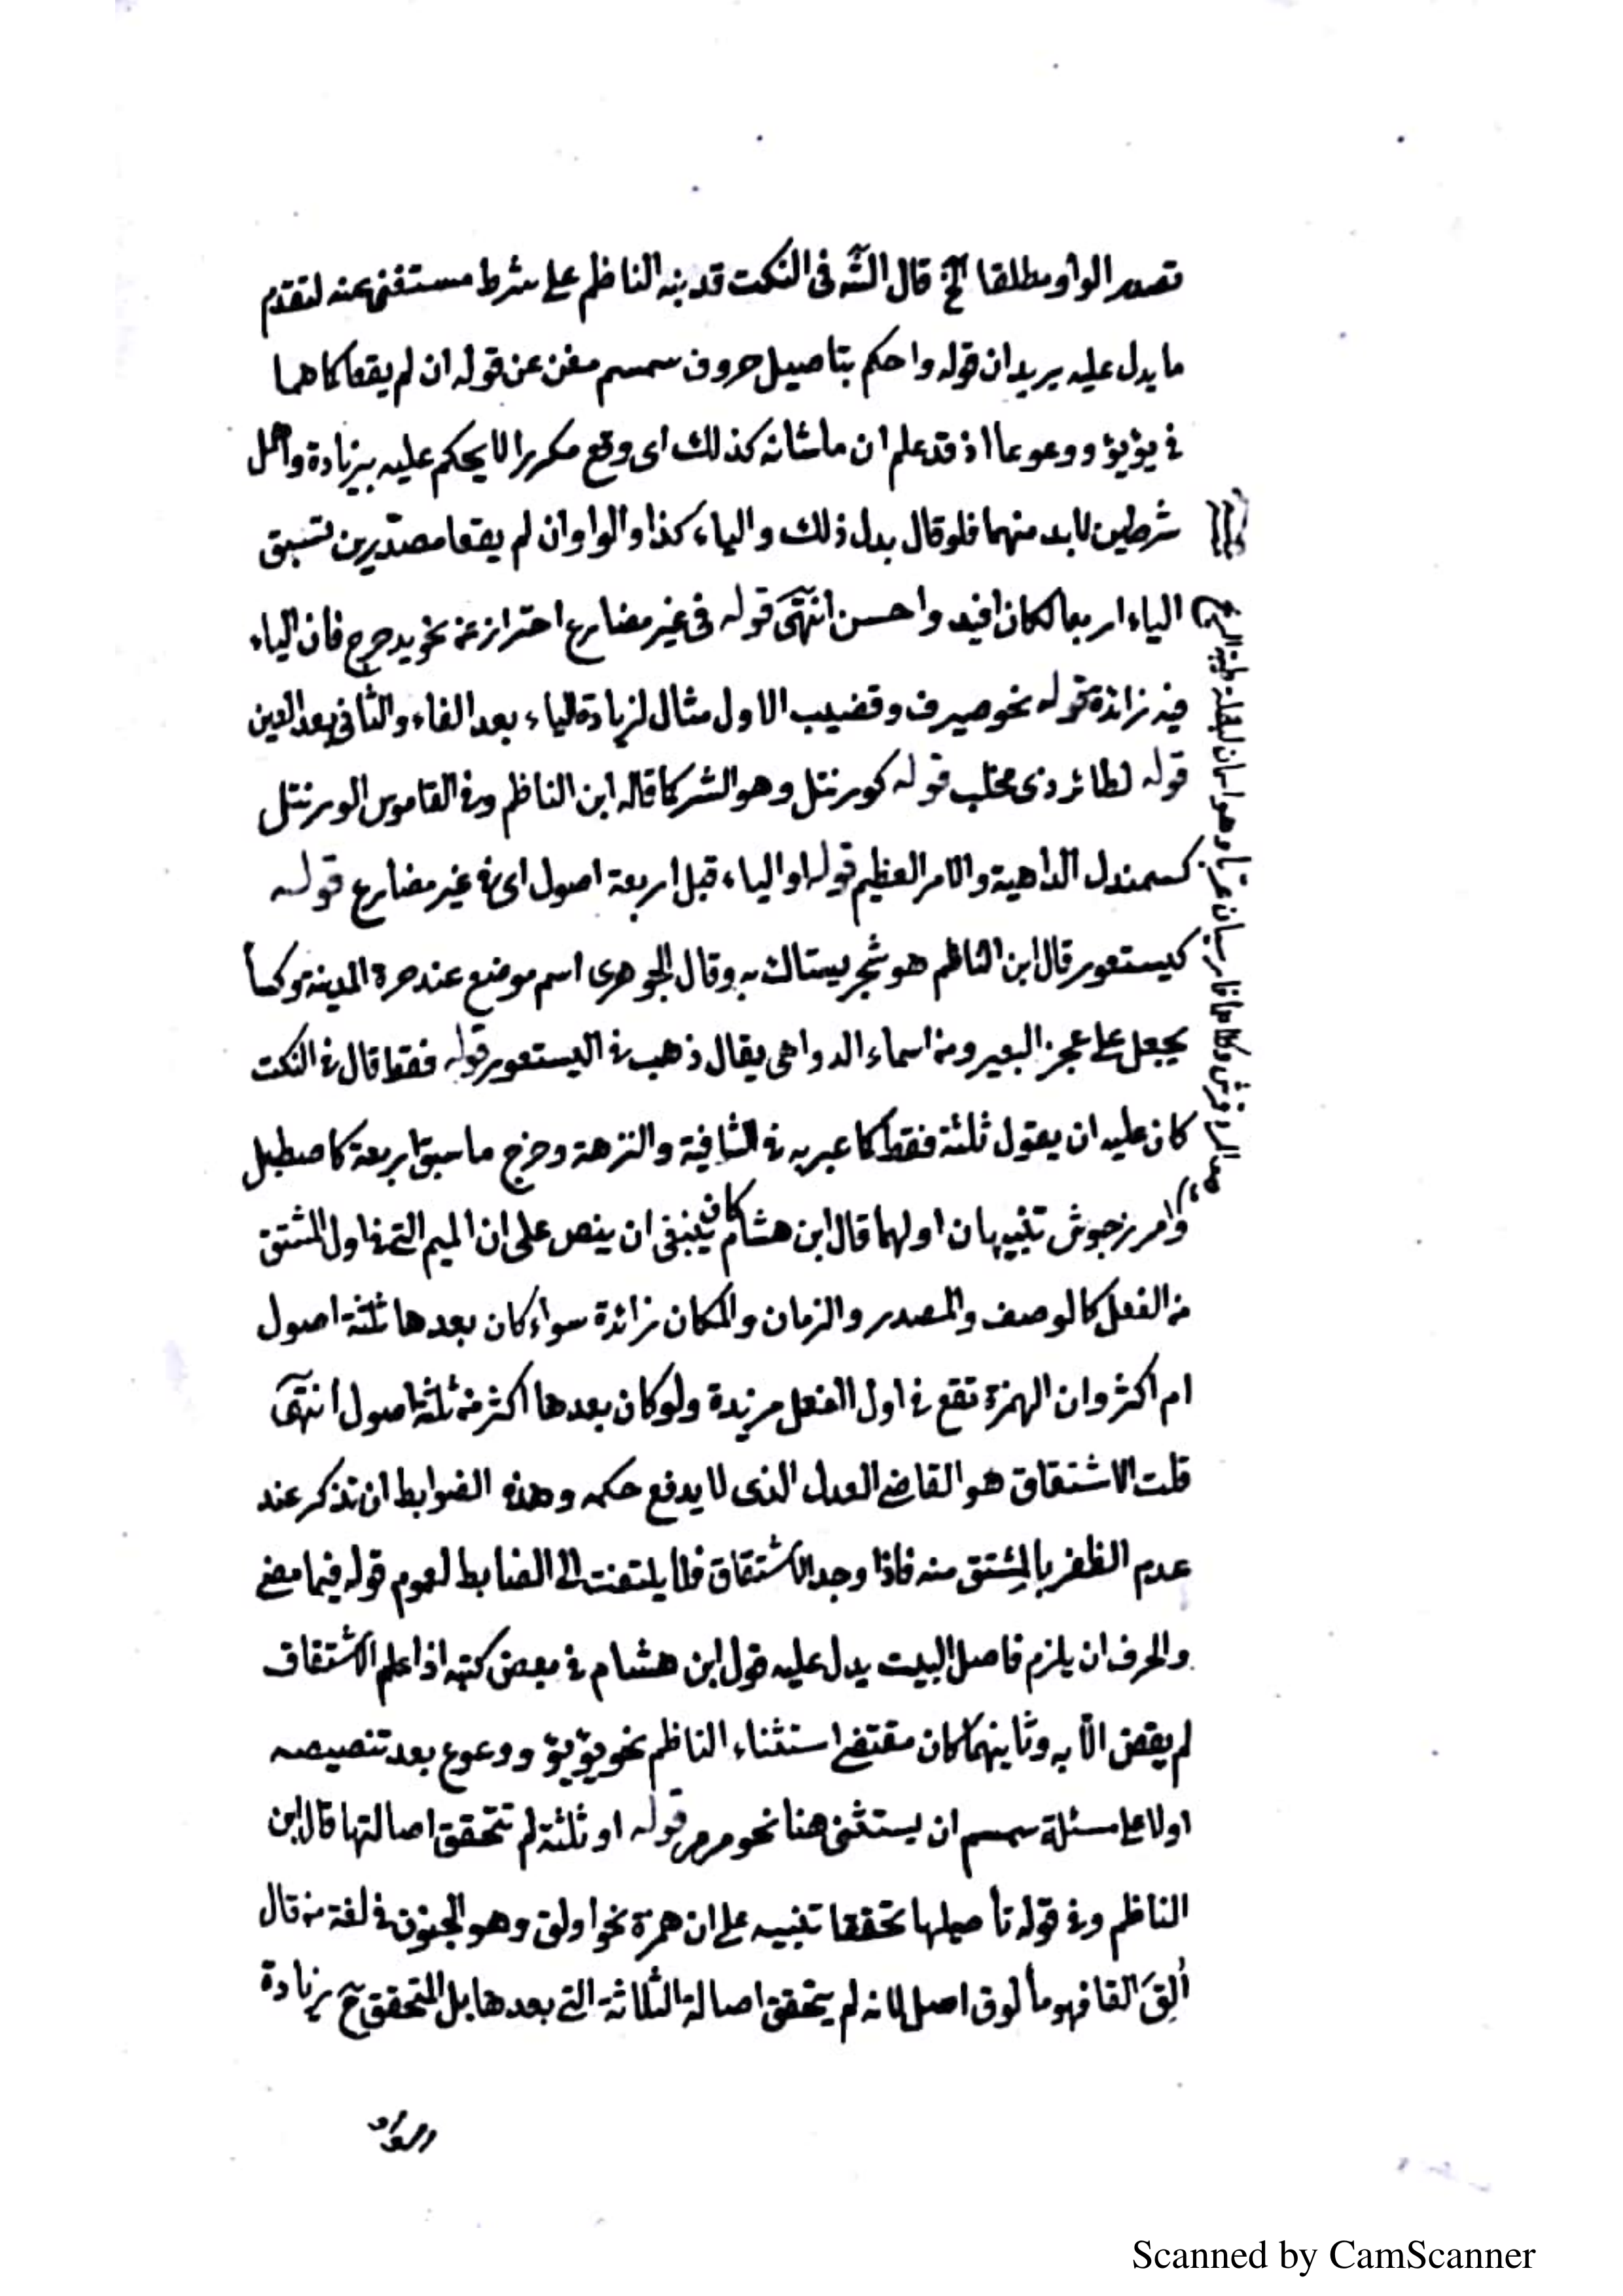 تصدر الواو مطلقا الخ قال الشه فى النكت قد نبه الناظم على شرط مستغنى عنه لتقدم
ما يدل عليه يريد ان قوله واحكم بتاصيل حروف سمسم مغن عن قوله ان لم يقعا كما هما
فى يؤيؤ ووعوعا اذ قد علم ان ما شانه كذلك اى وقع مكررا لا يحكم عليه بزيادة واهمل
شرطين لا بد منهما فلو قال بدل ذلك والياء كذا والواو ان لم يقعا مصدّرين تسبق
الياء اربعا لكان افيد واحسن انتهى قوله فى غير مضارع احتراز عن نحو يدحرج فان الياء
فيه زائدة قوله نحو صيرف وقضيب الاول مثال لزيادة الياء بعد الفاء والثانى بعد العين
قوله لطائر ذى مخلب قوله كورنتل وهو الشر كما قاله ابن الناظم وفى القاموس الورنتل
كسمندل الداهية والامر العظيم قوله او الياء قبل اربعة اصول اى فى غير مضارع قوله
كيستعور قال ابن الناظم هو شجر يستاك به وقال الجوهرى اسم موضع عند حرة المدينة وكسأ
يجعل على عجز البعير ومن اسماء الدواهى يقال ذهب فى اليستعور قوله فقط قال فى النكت
كان عليه ان يقول ثلثة فقط كما عبر به فى الشافية والنزهة وخرج ما سبق اربعة كاصطبل
وامرزجوش تنبيهان اولهما قال ابن هشام كان ينبغى ان ينص على ان الميم التى فى اول المشتق
من الفعل كالوصف والمصدر والزمان والمكان زائدة سواء كان بعدها ثلثة اصول
ام اكثر وان الهمزة تقع فى اول الفعل مزيدة ولو كان بعدها اكثر من ثلثة اصول انتهى
قلت الاشتقاق هو القاضى العدل الذى لا يدفع حكمه وهذه الضوابط ان تذكر عند
عدم الظفر بالمشتق منه فاذا وجد الاشتقاق فلا يلتفت الى الضابط لعموم قوله فيما مضى
والحرف ان يلزم فاصل البيت يدل عليه قول ابن هشام فى بعض كتبه اذا علم الاشتقاق
لم يقض الّا به وثانيهما كان مقتضى استثناء الناظم نحو يؤيؤ ووعوع بعد تنصيصه
اولا على مسئلة سمسم ان يستثنى هنا نحو مرمر قوله او ثلثة لم تتحقق اصالتها قال ابن
الناظم وفى قوله تأصيلها تحققا تنبيه على ان همزة نحو اولق وهو الجنون فى لغة من قال
اُلِقَ القا فهو مألوق اصل لانه لم يتحقق اصالة الثلاثة التى بعدها بل المتحقق ح زيادة
الواو
Scanned by CamScanner